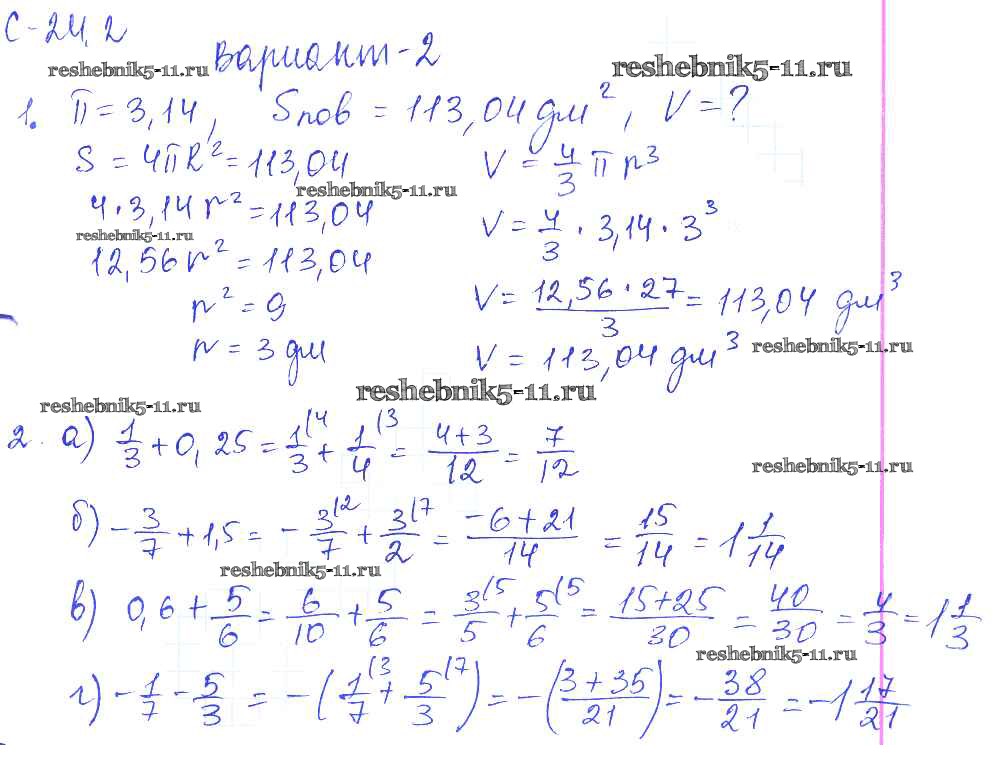 С-24.2
Вариант-2
reshebnik5-11.ru
reshebnik5-11.ru
1. π = 3,14, Sпов = 113,04 дм², V = ?
S = 4πR² = 113,04
V = 4/3 π r³
reshebnik5-11.ru
4 · 3,14 r² = 113,04
V = 4/3 · 3,14 · 3³
reshebnik5-11.ru
12,56 r² = 113,04
r² = 9
V = 12,56 · 27/3 = 113,04 дм³
r = 3 дм
V = 113,04 дм³
reshebnik5-11.ru
reshebnik5-11.ru
reshebnik5-11.ru
2. а) 1/3 + 0,25 = 1/3 (4 + 1/4 (3 = 4+3/12 = 7/12
reshebnik5-11.ru
б) -3/7 + 1,5 = -3/7 (2 + 3/2 (7 = -6+21/14 = 15/14 = 1 1/14
reshebnik5-11.ru
в) 0,6 + 5/6 = 6/10 + 5/6 = 3/5 (5 + 5/6 (5 = 15+25/30 = 40/30 = 4/3 = 1 1/3
reshebnik5-11.ru
г) -1/7 - 5/3 = -(1/7 (3 + 5/3 (7) = -(3+35/21) = -38/21 = -1 17/21